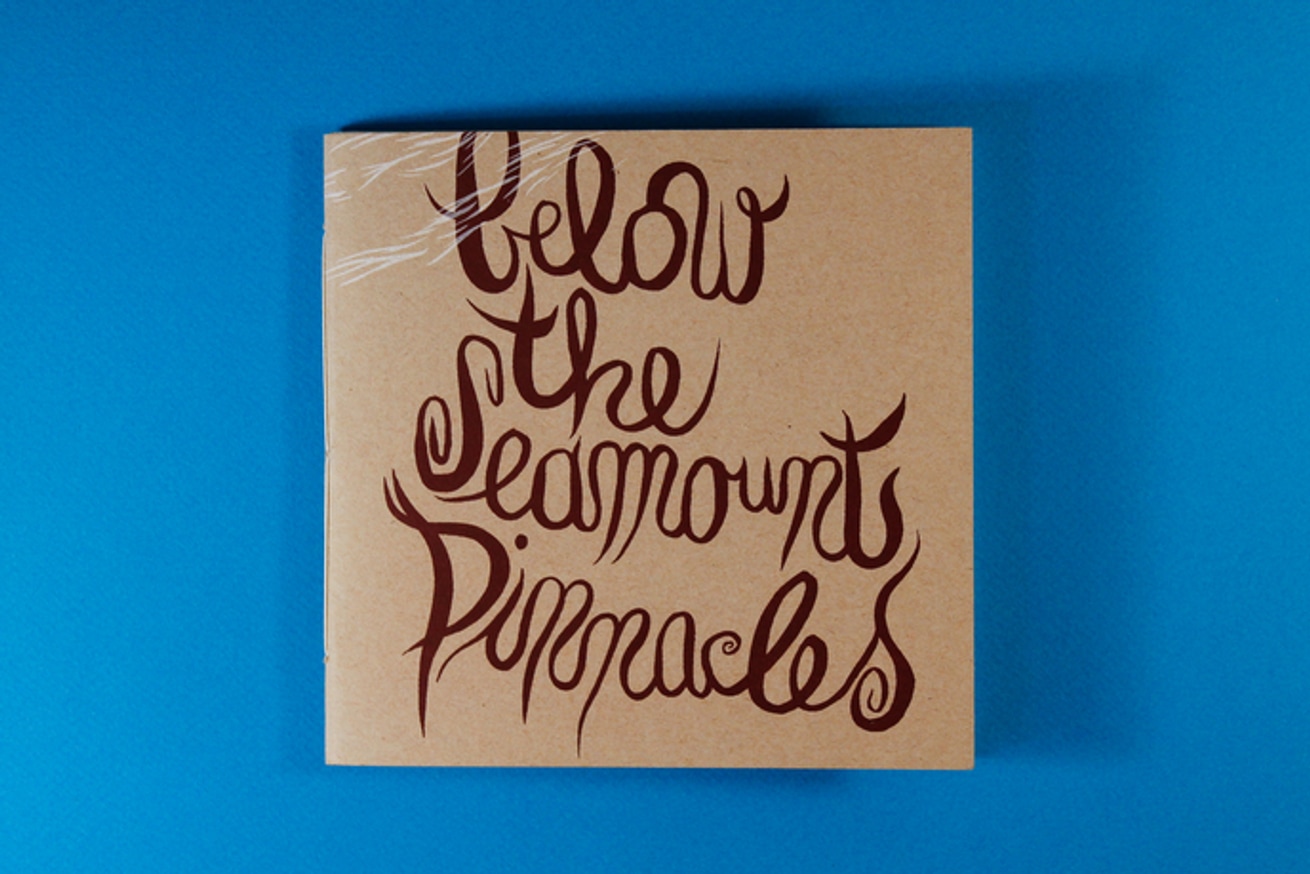 below
the
Seamount
Pinnacles